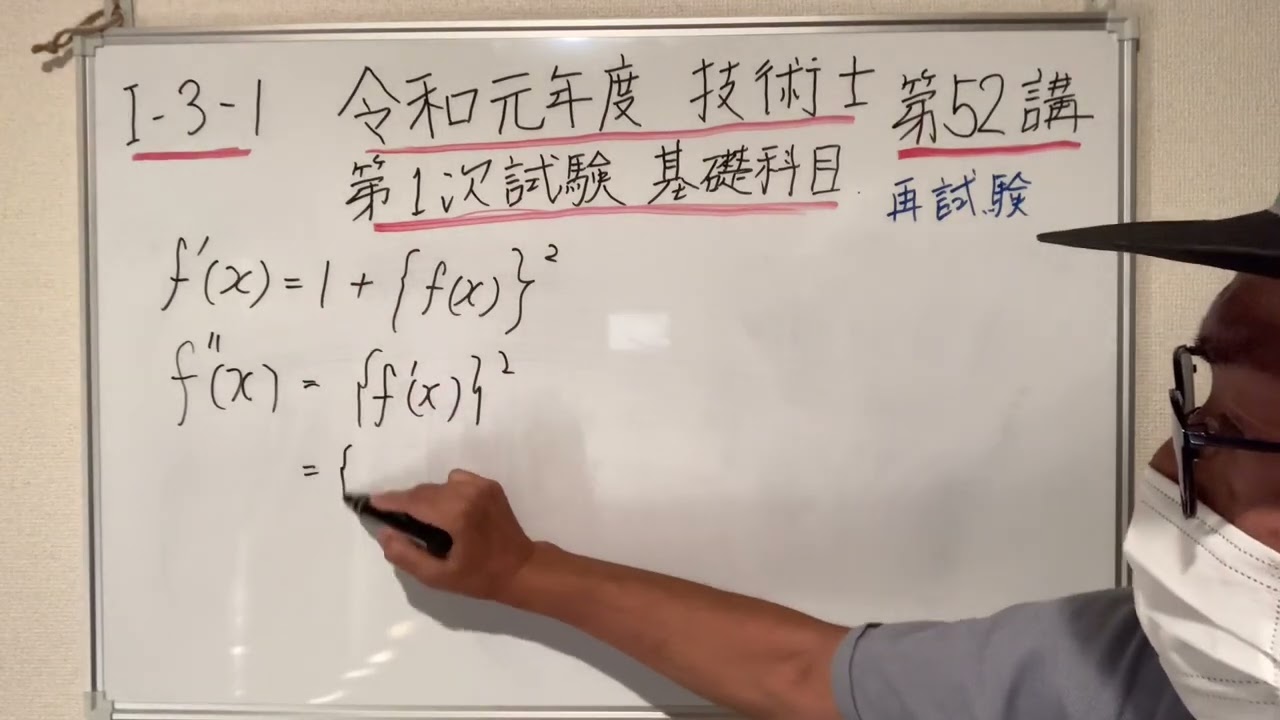 I-3-1 令和元年度 技術士 第52講
第1次試験 基礎科目 再試験
f'(x) = 1 + {f(x)}²
f''(x) = {f'(x)}²
= {